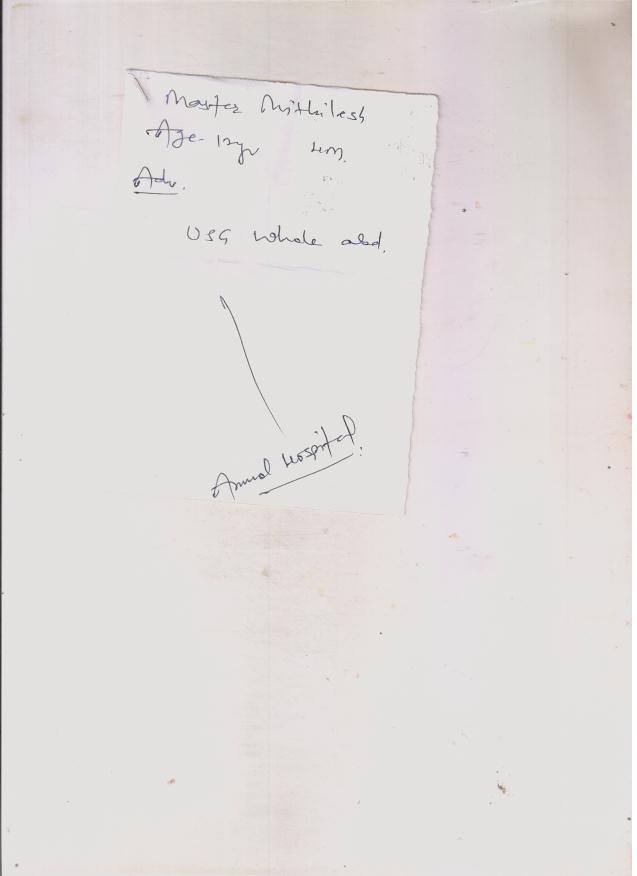 Master Mithilesh
Age- 12yr
Adv.
USG whole abd.
Hospital